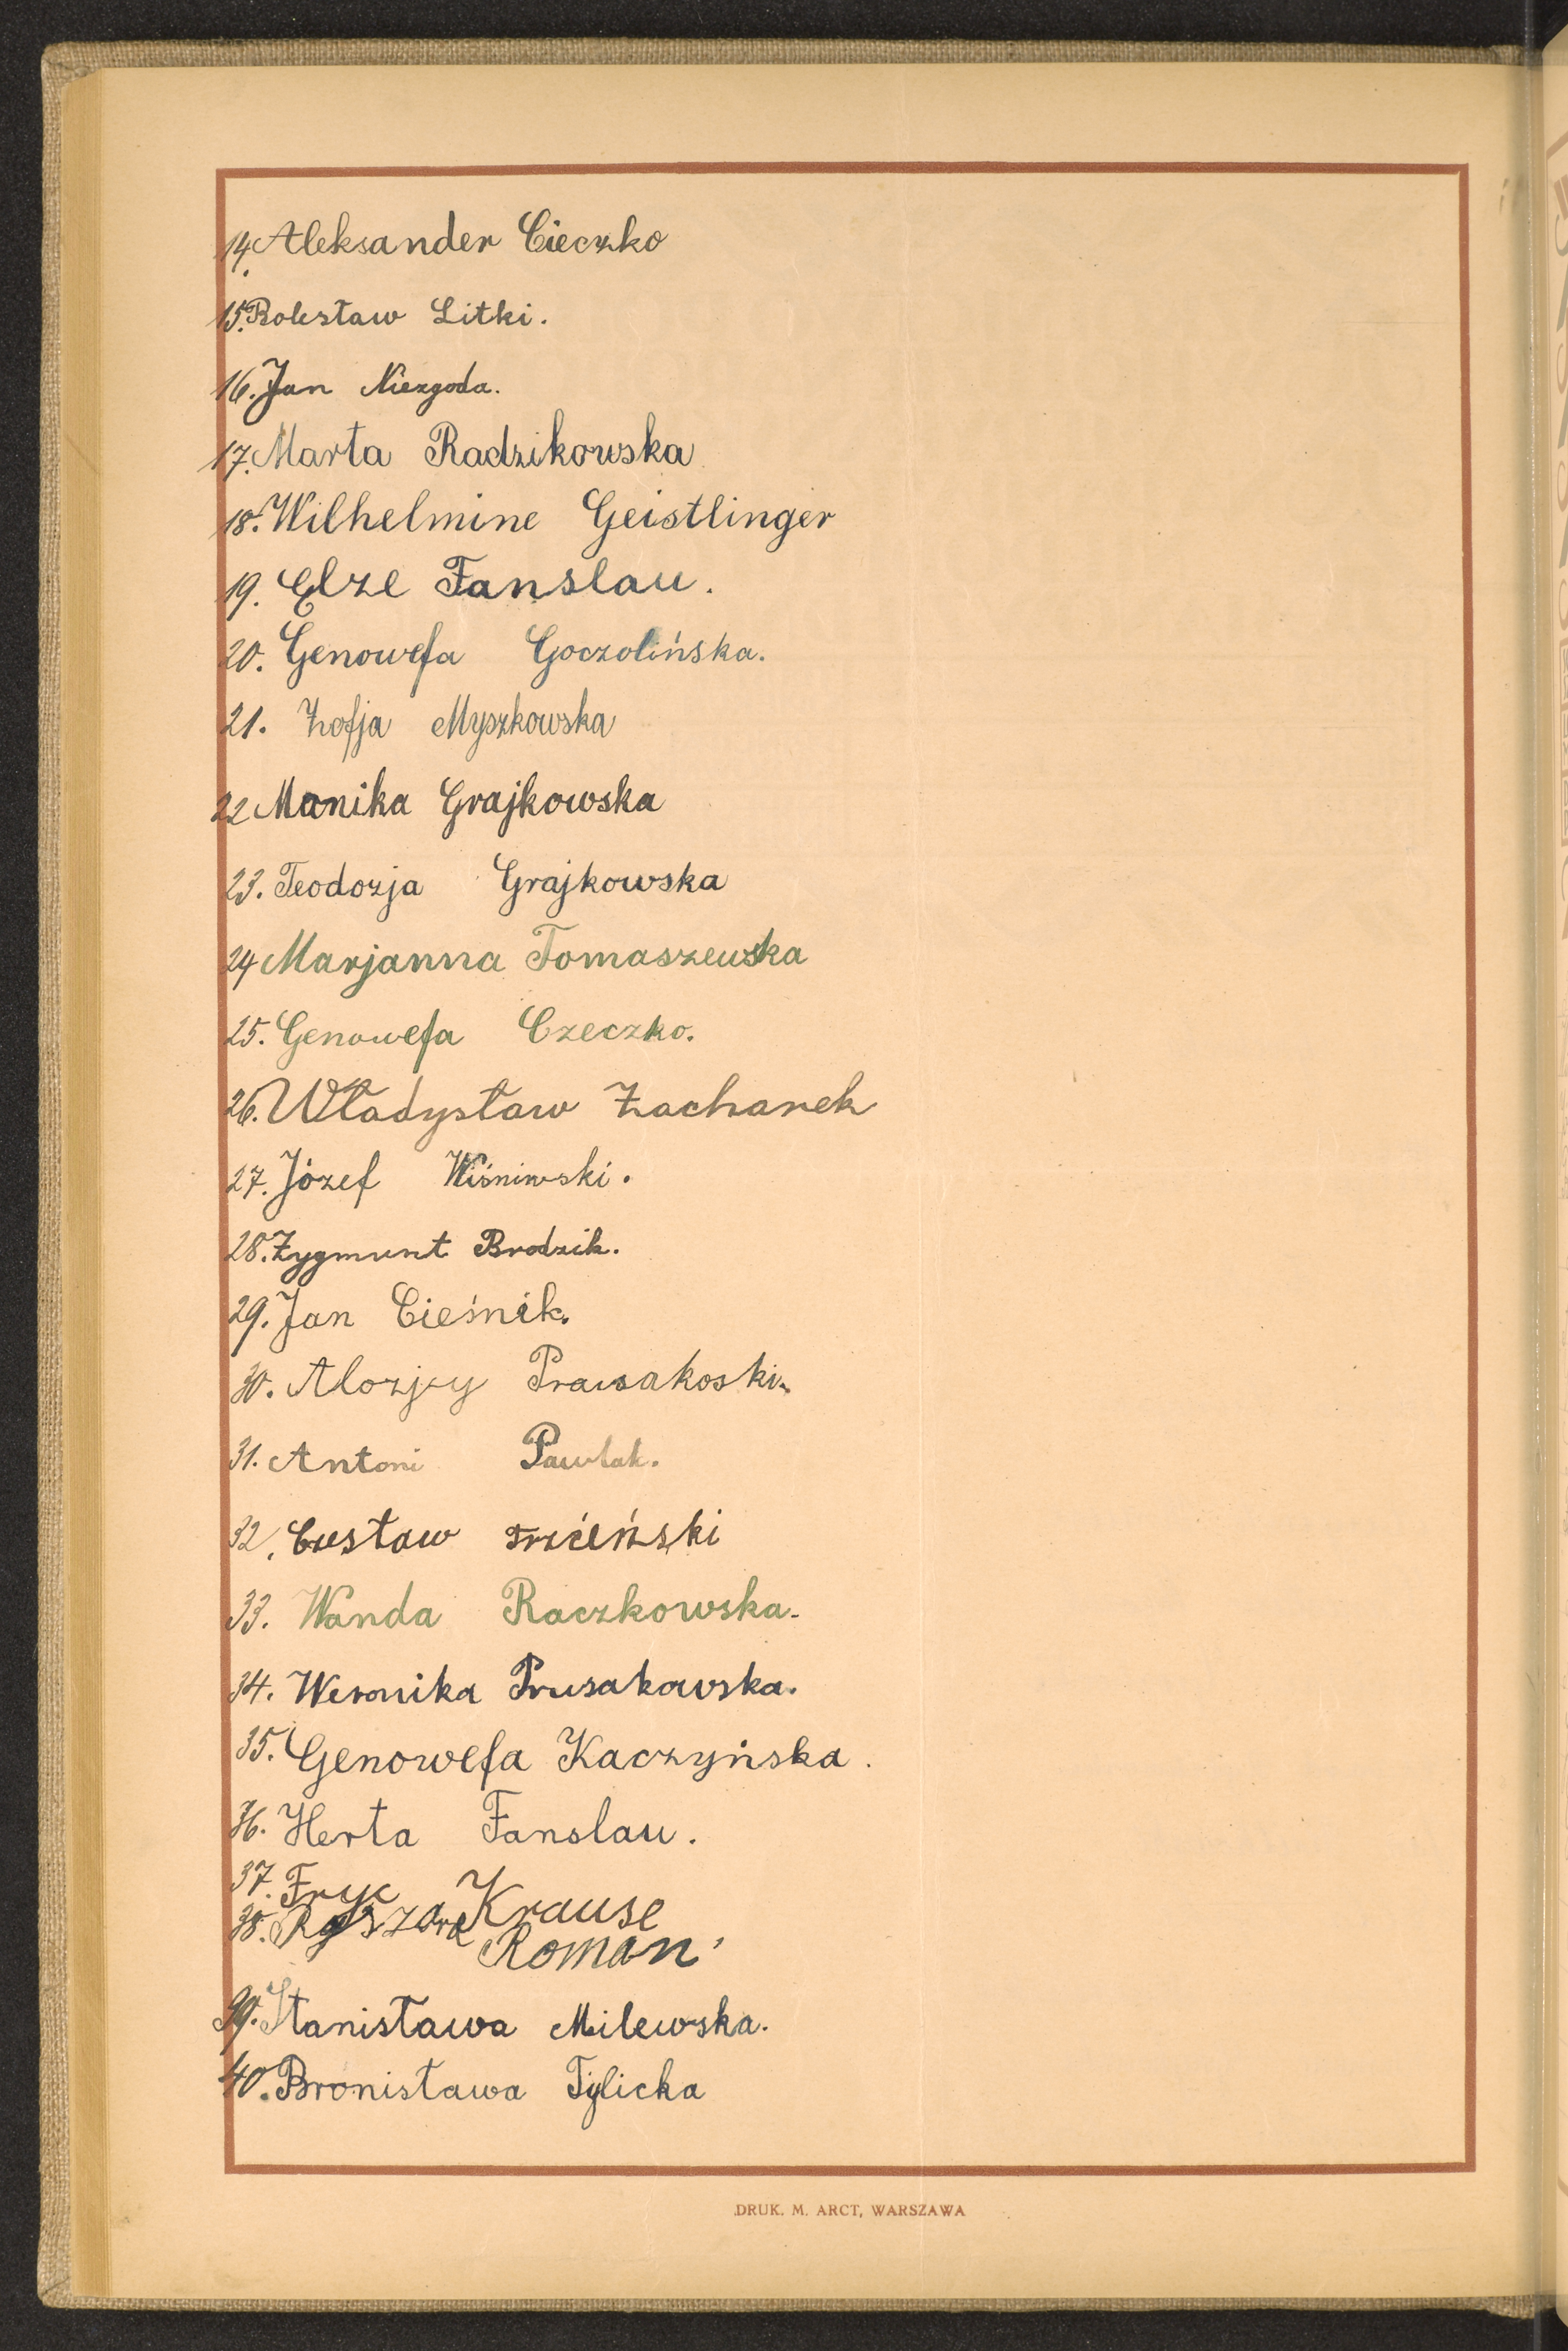 14. Aleksander Cieczko
15. Bolesław Litki.
16. Jan Niezgoda.
17. Marta Radzikowska
18. Wilhelmine Geistlinger
19. Elze Fanslau.
20. Genowefa Goczolińska.
21. Zofja Myszkowska
22 Monika Grajkowska
23. Teodozja Grajkowska
24 Marjanna Tomaszewska
25. Genowefa Czeczko.
26. Władysław Zacharek
27. Józef Wiśniwski.
28. Zygmunt Brodzik.
29. Jan Cieśnik.
30. Alozjzy Prawsakoski.
31. Antoni Pawlak.
32. Czesław Trzćeński
33. Wanda Raczkowska.
34. Weronika Prusakowska.
35. Genowefa Kaczyńska.
36. Herta Fanslau.
37. Fryc Krause
38. Ryszard Roman
39. Stanisława Milewska.
40. Bronisława Tylicka
DRUK. M. ARCT, WARSZAWA